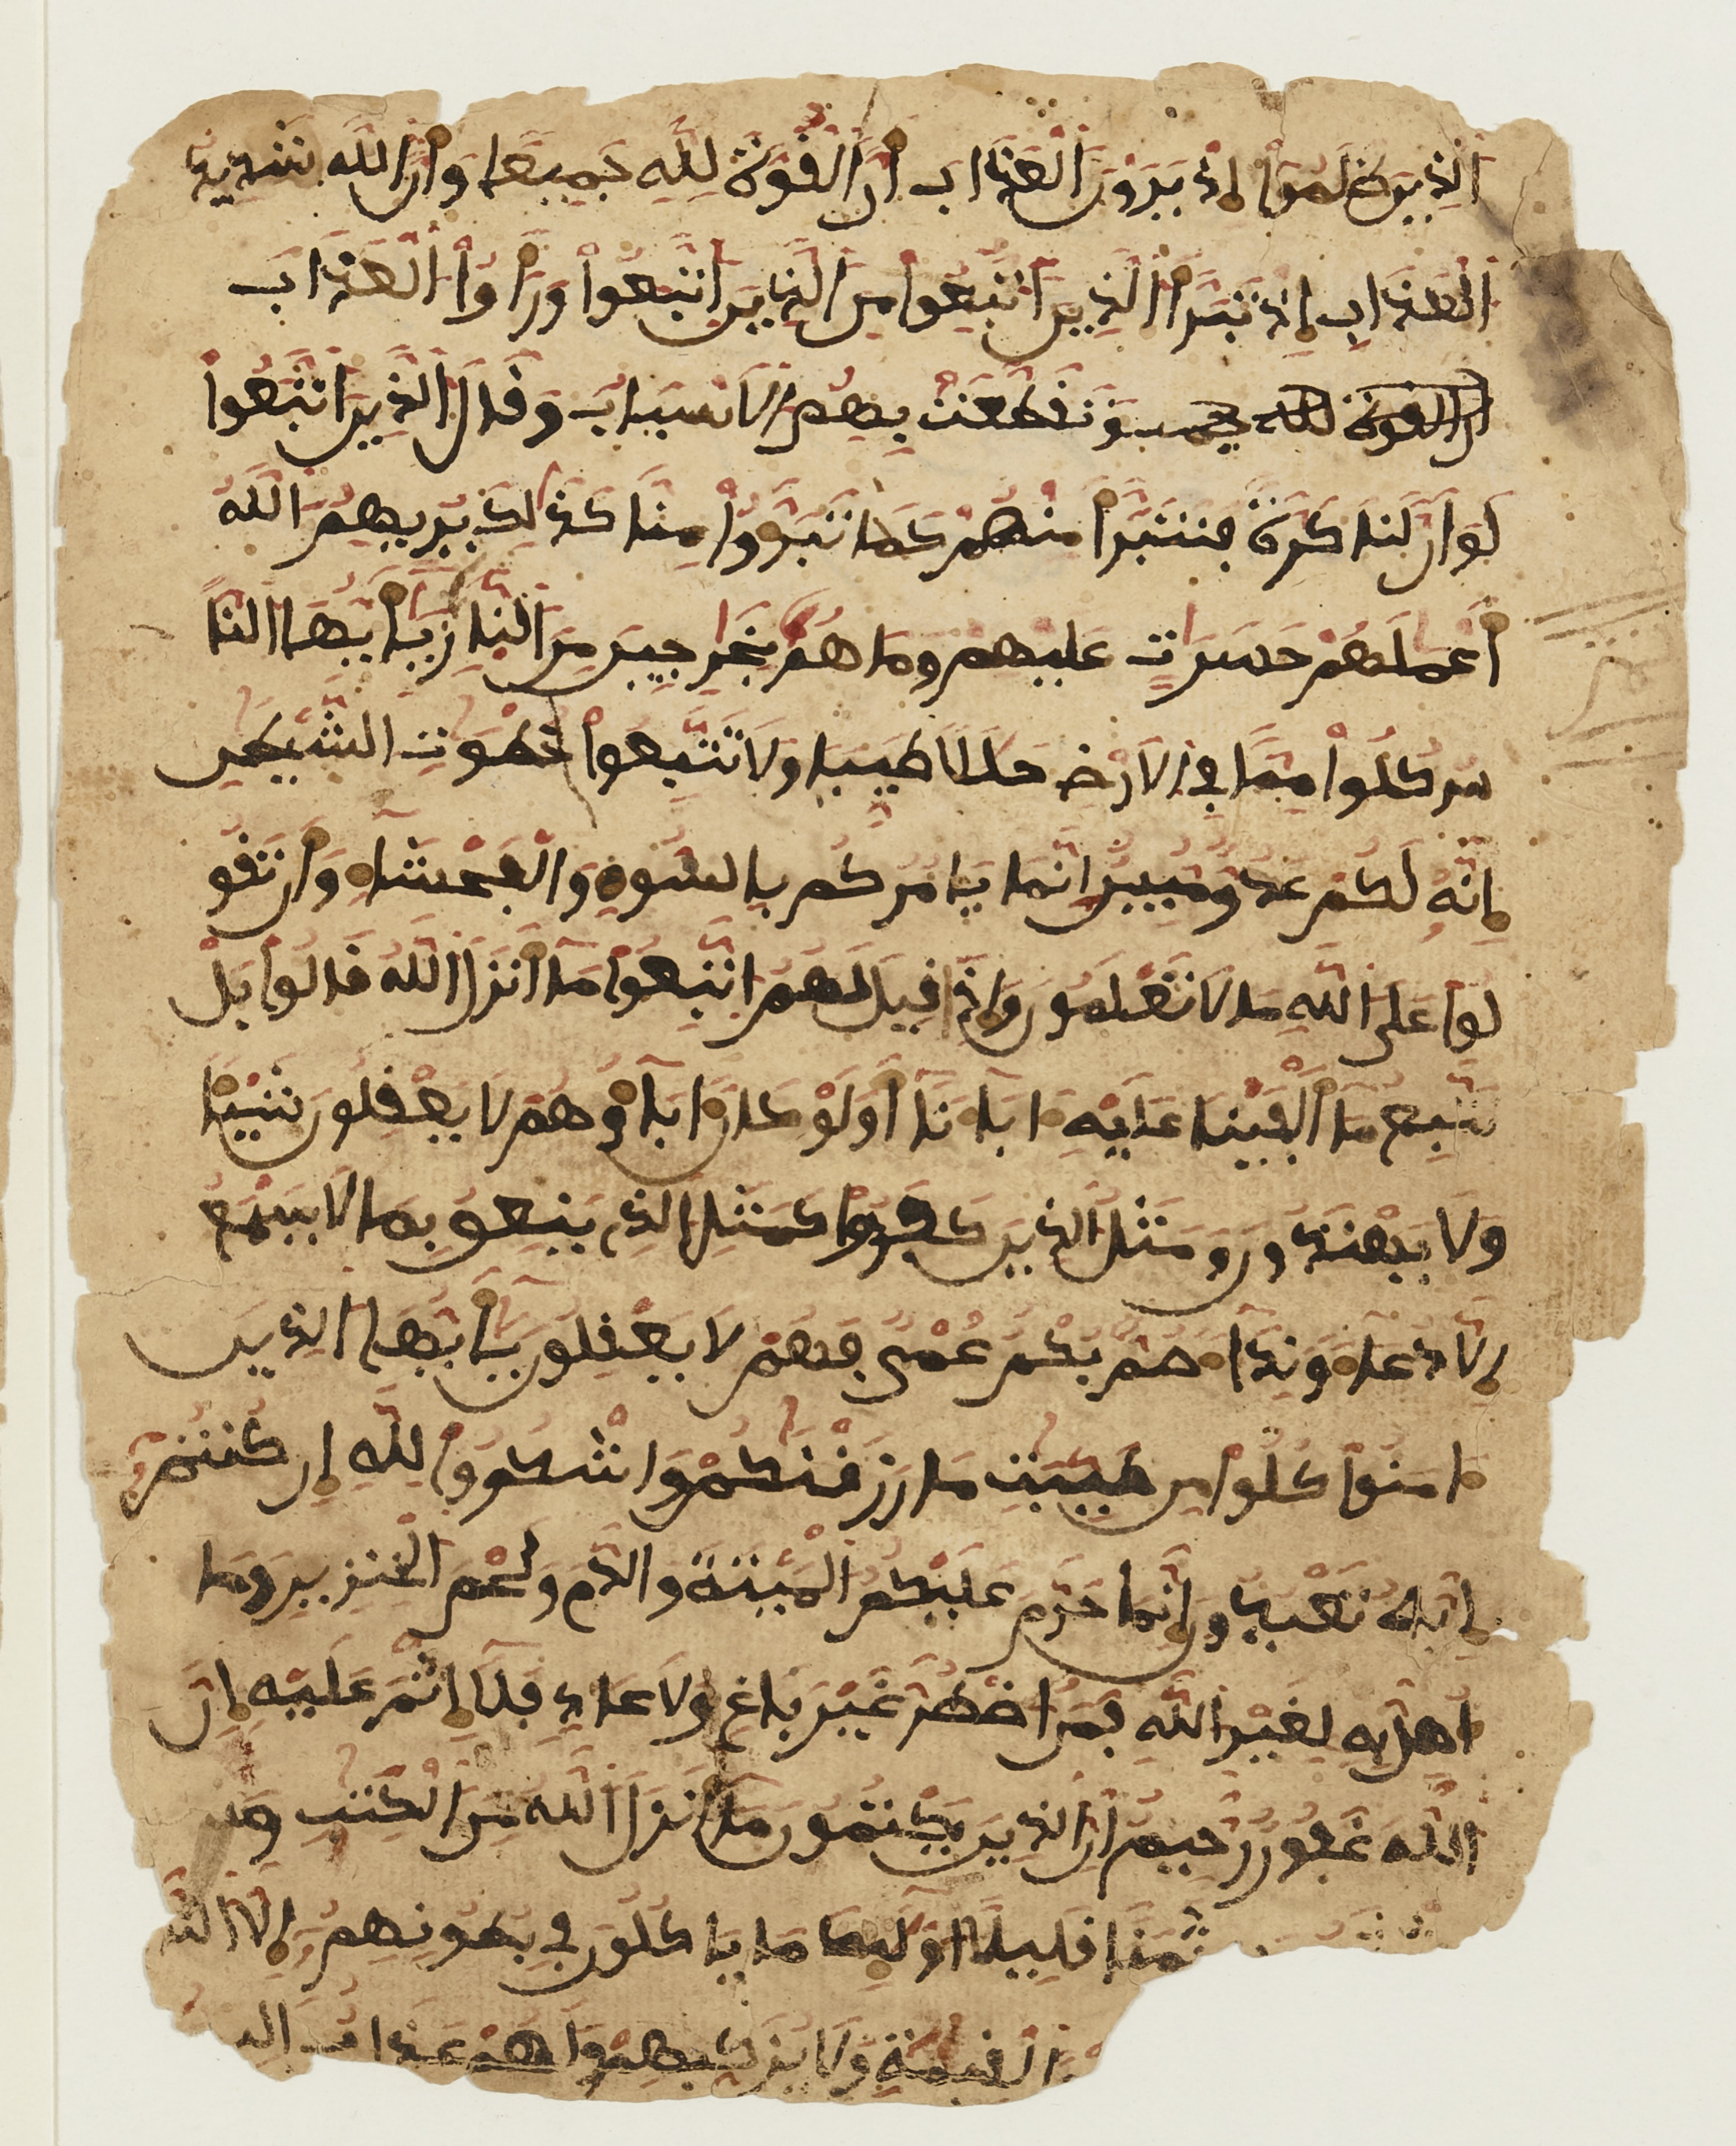 الذين ظلموا إذ يرون العذاب أن القوة لله جميعا وأن الله شديد
العذاب إذ تبرأ الذين اتبعوا من الذين اتبعوا ورأوا العذاب
أن القوة لله جميعا وتقطعت بهم الاسباب وقال الذين اتبعوا
لو أن لنا كرة فنتبرأ منهم كما تبرءوا منا كذلك يريهم الله
أعملهم حسرت عليهم وما هم بخرجين من النار يأيها النا
س كلوا مما في الارض حللا طيبا ولا تتبعوا خطوت الشيطن
إنه لكم عدو مبين إنما يامركم بالسوء والفحشاء وأن تقو
لوا على الله ما لا تعلمون وإذا قيل لهم اتبعوا ما أنزل الله قالوا بل
نتبع ما ألفينا عليه ءاباءنا أولو كان ءاباؤهم لا يعقلون شيئا
ولا يهتدون ومثل الذين كفروا كمثل الذي ينعق بما لا يسمع
إلا دعاء ونداء صم بكم عمي فهم لا يعقلون يأيها الذين
ءامنوا كلوا من طيبت ما رزقنكم واشكروا لله إن كنتم
إياه تعبدون إنما حرم عليكم الميتة والدم ولحم الخنزير وما
أهل به لغير الله فمن اضطر غير باغ ولا عاد فلا إثم عليه إن
الله غفور رحيم إن الذين يكتمون ما أنزل الله من الكتب
ثمنا قليلا أوليك ما ياكلون في بطونهم إلا النا
القيمة ولا يزكيهم ولهم عذاب اليم